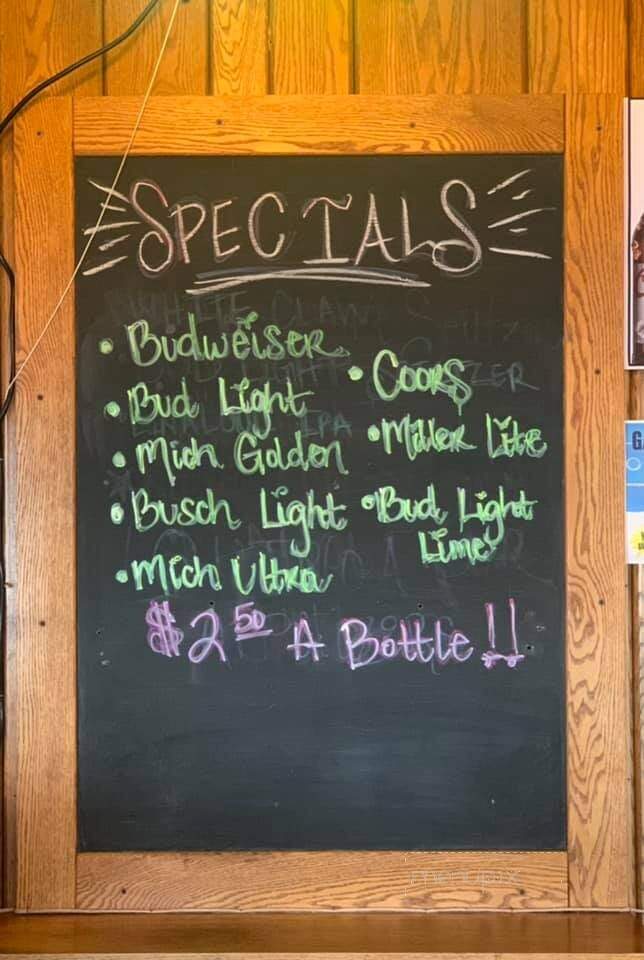 SPECIALS
• Budweiser
• Bud Light
• Mich Golden
• Busch Light
• Mich Ultra
• Coors
• Miller Lite
• Bud Light
Lime
$2.50 A Bottle!!
WHITE CLAW
IPA